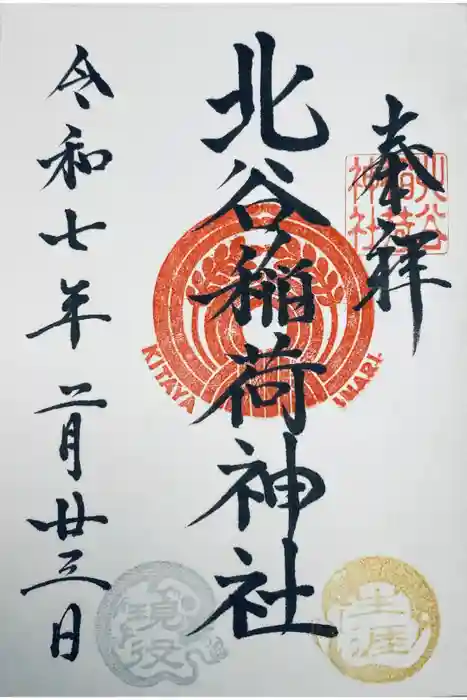 奉拝
北谷稲荷神社
令和七年二月廿三日
北谷稲荷神社
KITAYA INARI